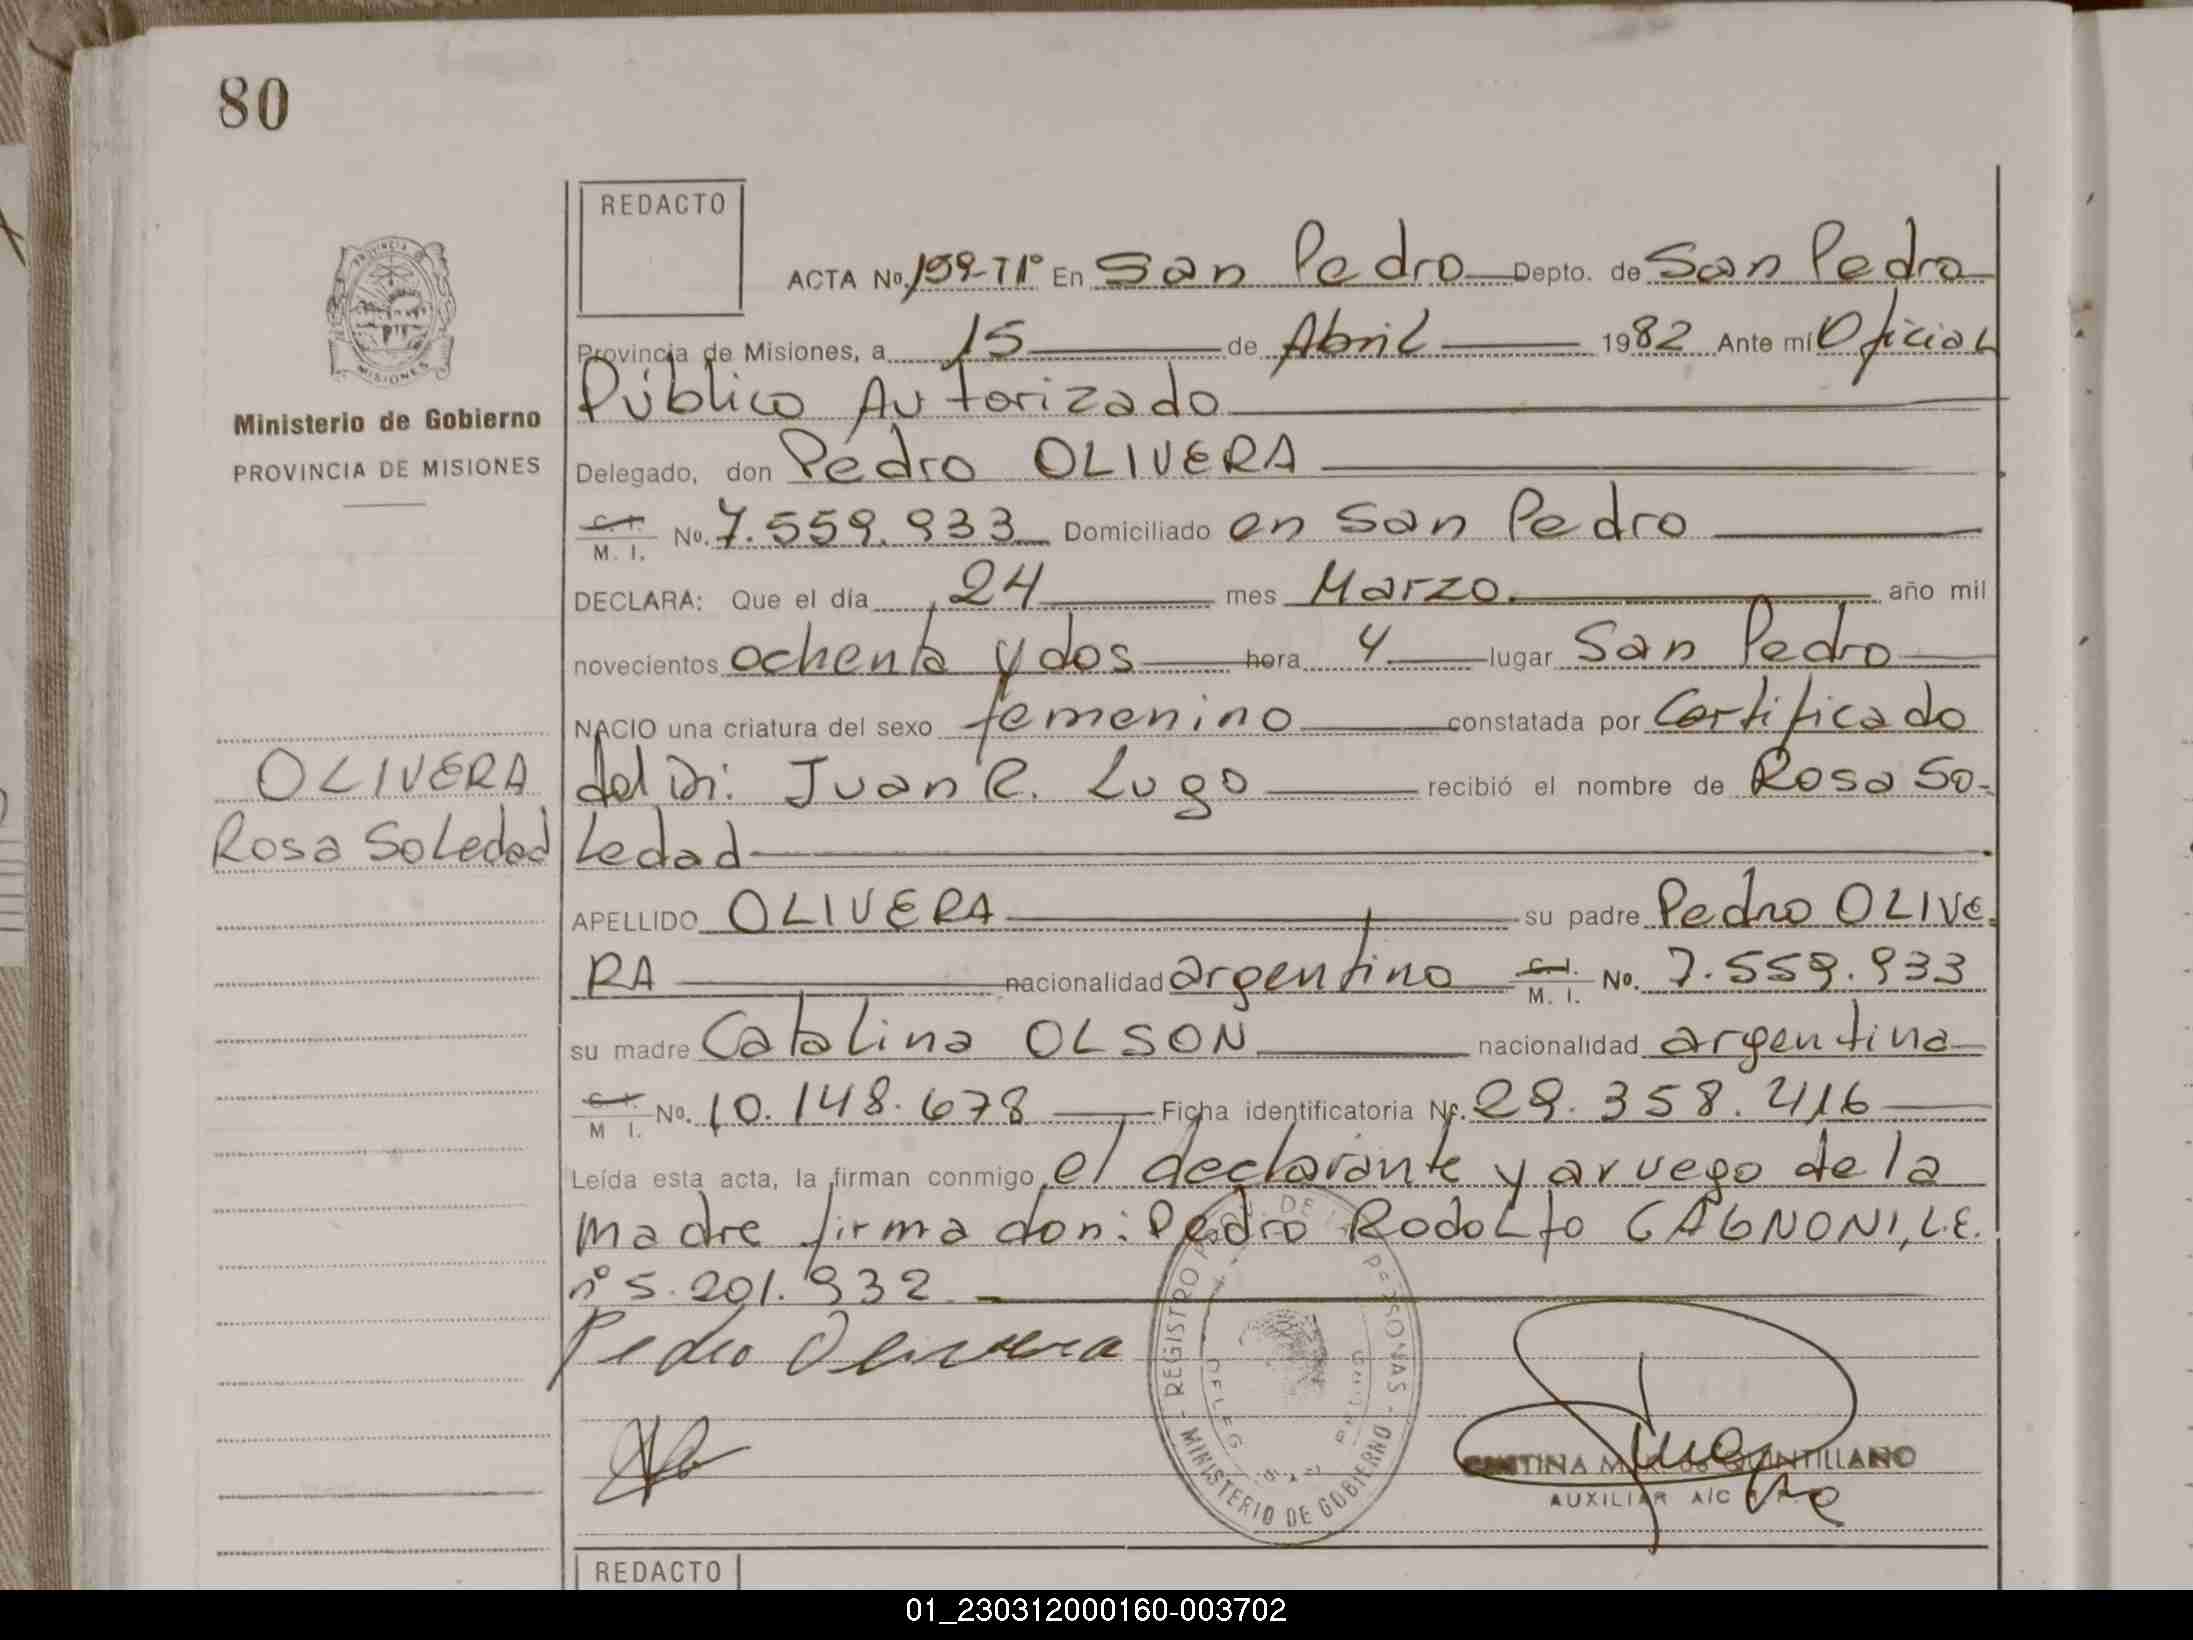 80
REDACTO
ACTA No. 159-T1° En San Pedro Depto. de San Pedro
Provincia de Misiones, a 15 de Abril 1982 Ante mí Oficial
Público Autorizado
Delegado, don Pedro OLIVERA
C. I. M. I. No. 7.559.933 Domiciliado en San Pedro
DECLARA: Que el día 24 mes Marzo año mil
novecientos ochenta y dos hora 4 lugar San Pedro
NACIO una criatura del sexo femenino constatada por Certificado
del Dr: Juan R. Lugo recibió el nombre de Rosa So-
ledad
APELLIDO OLIVERA su padre Pedro OLIVE-
RA nacionalidad argentino C. I. M. I. No. 7.559.933
su madre Catalina OLSON nacionalidad argentina
C. I. M I. No. 10.148.678 Ficha identificatoria Nº. 29.358.416
Leída esta acta, la firman conmigo el declarante y a ruego de la
madre firma don: Pedro Rodolfo GAGNONI, L.E.
n° 5.201.932
Pedro Olivera
PROVINCIA
MISIONES
Ministerio de Gobierno
PROVINCIA DE MISIONES
OLIVERA
Rosa Soledad
REGISTRO DE PERSONAS
MINISTERIO DE GOBIERNO
QUINTILLANO
AUXILIAR A/C
REDACTO
01_230312000160-003702